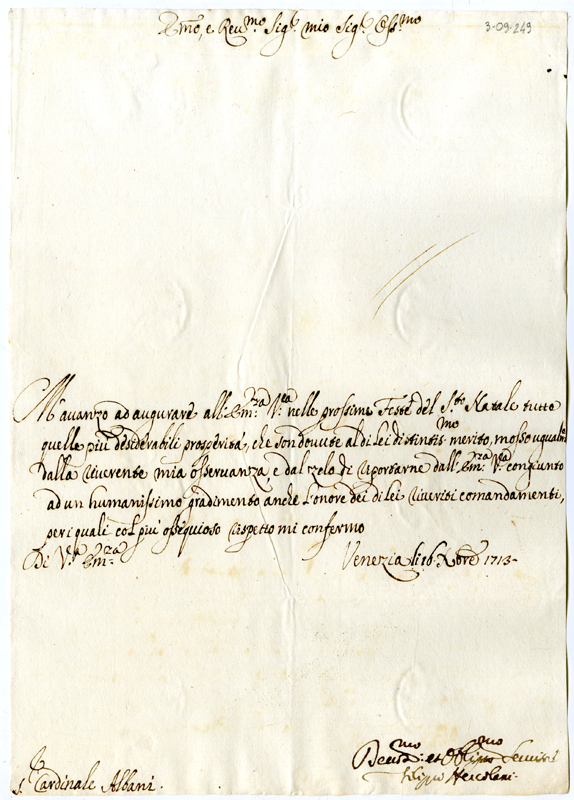 Em̃o, e Reu.mo Sig.r mio Sig.r Oss.mo
3-09-249
M'auanzo ad augurare all'Em.za V.ra nelle prossime Feste del S.to Natale tutte
quelle più desiderabili prosperità, che son dovute al di lei distintis.mo merito, mosso ugualm.e
dalla riuerente mia osseruanza, e dal zelo di riportarne dall'Em.za V.ra congiunto
ad un humanissimo gradimento anche l'onore dei di lei riueriti comandamenti,
per i quali col più ossequioso rispetto mi confermo
Di V.ra Em.za
Venezia li 16 Xbre 1713
S. Cardinale Albani.
Deuot.mo et Obblig.mo Seruit.r
Filippo Hercolani